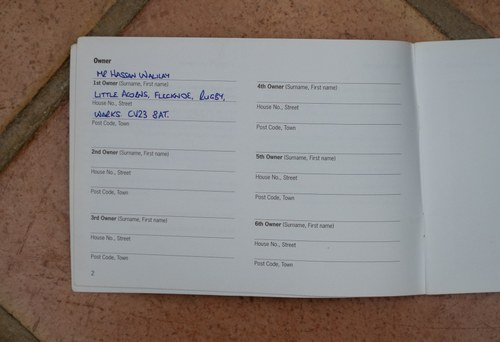 Owner
MR HASSAN
1st Owner (Surname, First name)
LITTLE ACORNS, FLECKNOE, RUGBY,
House No., Street
WARKS CV23 8AT.
Post Code, Town
2nd Owner (Surname, First name)
House No., Street
Post Code, Town
3rd Owner (Surname, First name)
House No., Street
Post Code, Town
2
4th Owner (Surname, First name)
House No., Street
Post Code, Town
5th Owner (Surname, First name)
House No., Street
Post Code, Town
6th Owner (Surname, First name)
House No., Street
Post Code, Town